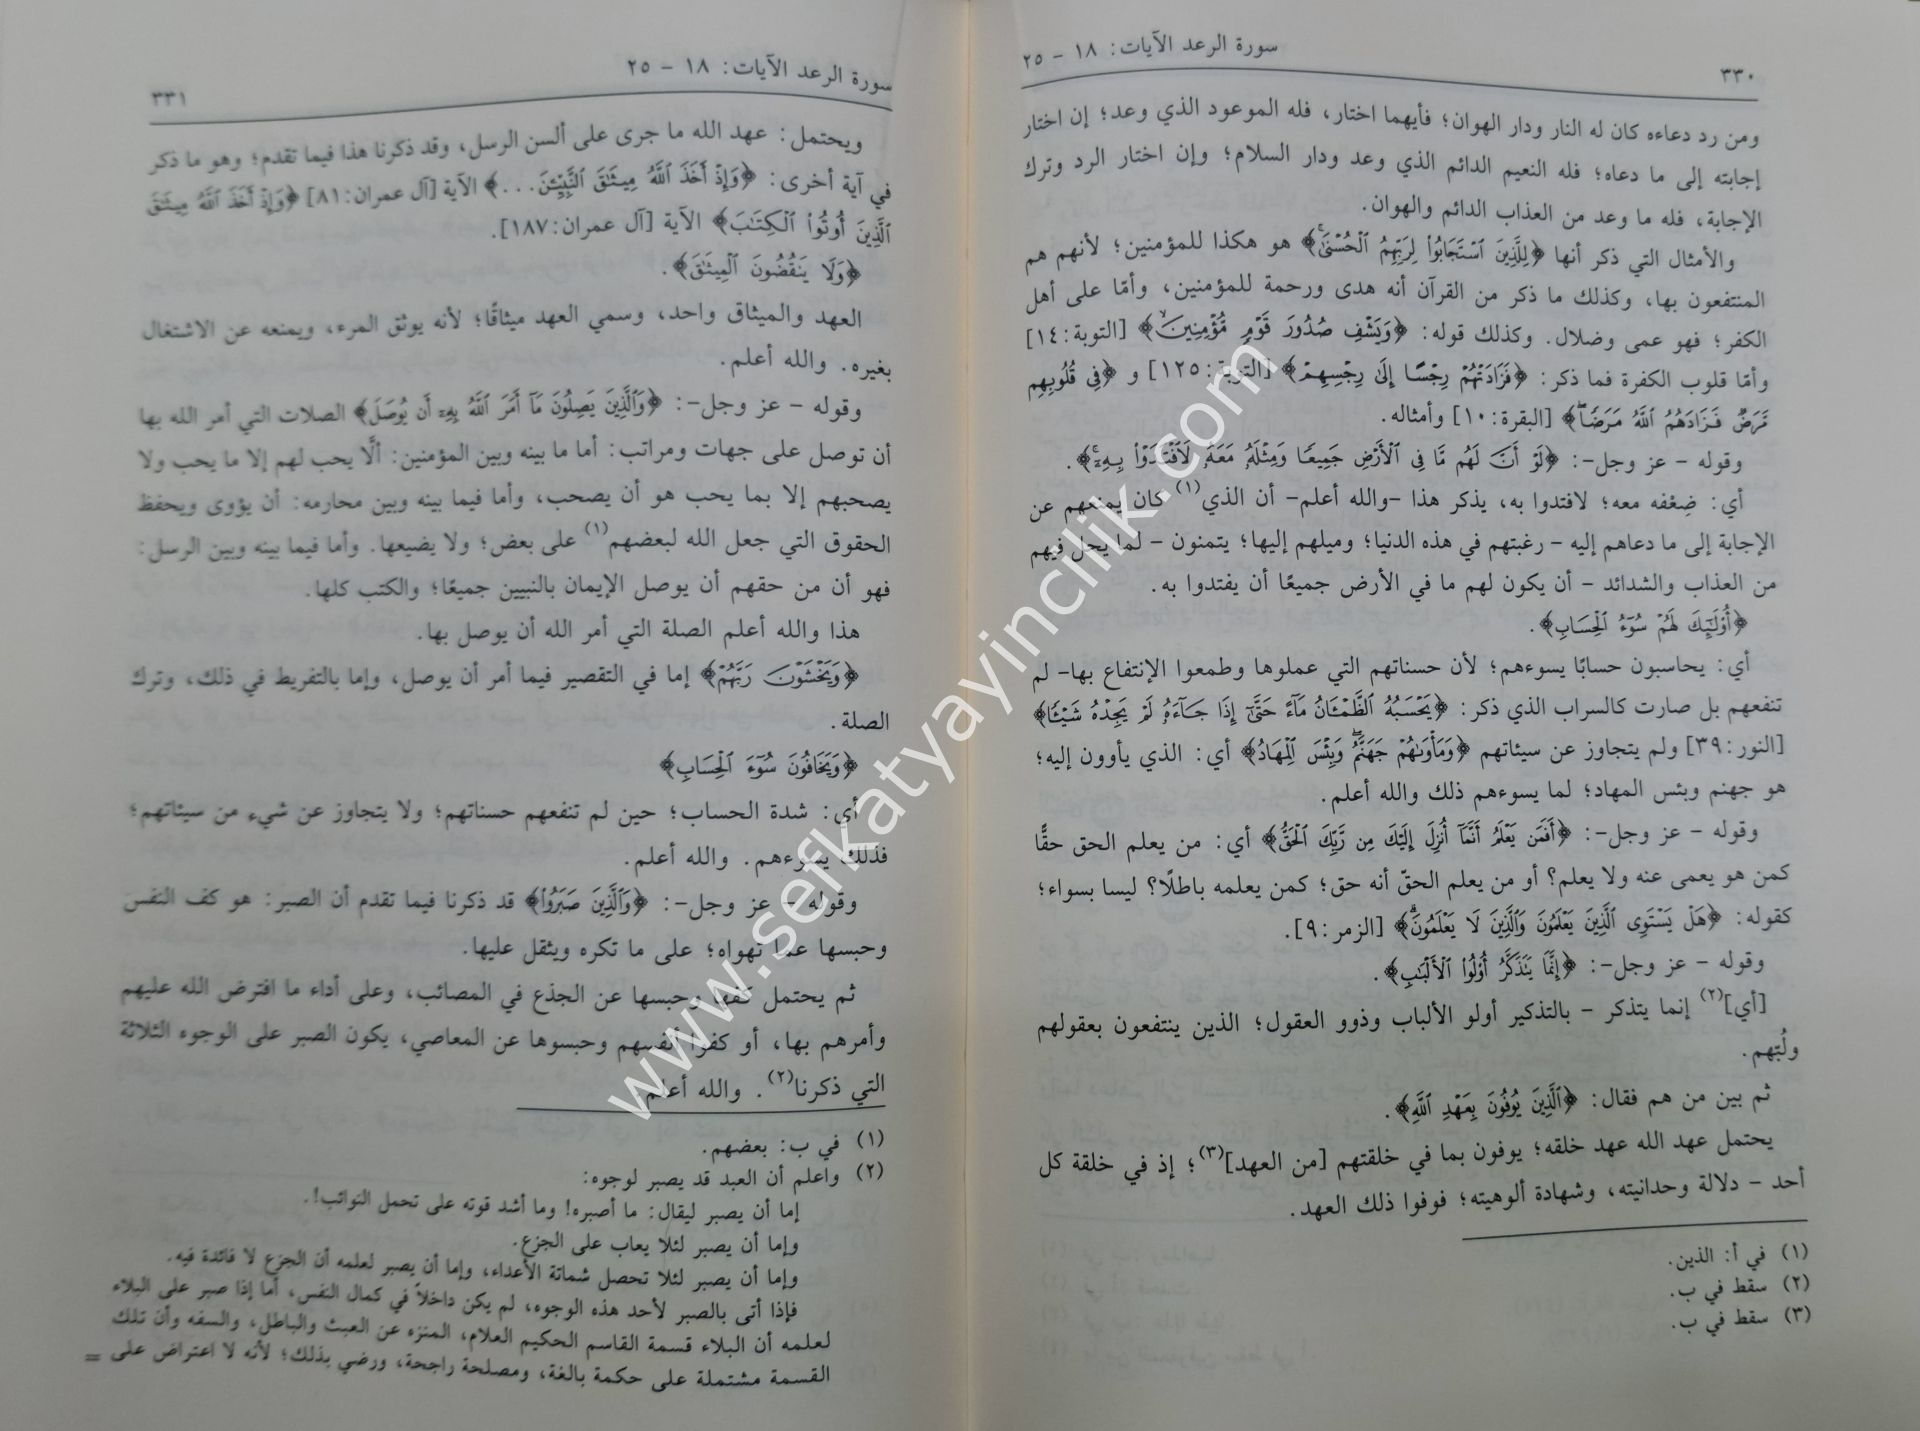 سورة الرعد الآيات: ١٨ - ٢٥
٣٣٠
ومن رد دعاءه كان له النار ودار الهوان؛ فأيهما اختار، فله الموعود الذي وعد؛ إن اختار
إجابته إلى ما دعاه؛ فله النعيم الدائم الذي وعد ودار السلام؛ وإن اختار الرد وترك
الإجابة، فله ما وعد من العذاب الدائم والهوان.
والأمثال التي ذكر أنها ﴿لِلَّذِينَ ٱسْتَجَابُوا۟ لِرَبِّهِمُ ٱلْحُسْنَىٰ﴾ هو هكذا للمؤمنين؛ لأنهم هم
المنتفعون بها، وكذلك ما ذكر من القرآن أنه هدى ورحمة للمؤمنين، وأمّا على أهل
الكفر؛ فهو عمى وضلال. وكذلك قوله: ﴿وَيَشْفِ صُدُورَ قَوْمٍ مُّؤْمِنِينَ﴾ [التوبة:١٤]
وأمّا قلوب الكفرة فما ذكر: ﴿فَزَادَتْهُمْ رِجْسًا إِلَىٰ رِجْسِهِمْ﴾ [التوبة:١٢٥] و ﴿فِى قُلُوبِهِم
مَّرَضٌ فَزَادَهُمُ ٱللَّهُ مَرَضًا﴾ [البقرة:١٠] وأمثاله.
وقوله - عز وجل-: ﴿لَوْ أَنَّ لَهُم مَّا فِى ٱلْأَرْضِ جَمِيعًا وَمِثْلَهُۥ مَعَهُۥ لَٱفْتَدَوْا۟ بِهِۦٓ﴾.
أي: ضِعْفه معه؛ لافتدوا به، يذكر هذا -والله أعلم- أن الذي(١) كان يمنعهم عن
الإجابة إلى ما دعاهم إليه - رغبتهم في هذه الدنيا؛ وميلهم إليها؛ يتمنون - لما يحل فيهم
من العذاب والشدائد - أن يكون لهم ما في الأرض جميعًا أن يفتدوا به.
﴿أُو۟لَٰٓئِكَ لَهُمْ سُوٓءُ ٱلْحِسَابِ﴾.
أي: يحاسبون حسابًا يسوءهم؛ لأن حسناتهم التي عملوها وطمعوا الإنتفاع بها- لم
تنفعهم بل صارت كالسراب الذي ذكر: ﴿يَحْسَبُهُ ٱلظَّمْـَٔانُ مَآءً حَتَّىٰٓ إِذَا جَآءَهُۥ لَمْ يَجِدْهُ شَيْـًٔا﴾
[النور:٣٩] ولم يتجاوز عن سيئاتهم ﴿وَمَأْوَىٰهُمْ جَهَنَّمُ وَبِئْسَ ٱلْمِهَادُ﴾ أي: الذي يأوون إليه؛
هو جهنم وبئس المهاد؛ لما يسوءهم ذلك والله أعلم.
وقوله - عز وجل-: ﴿أَفَمَن يَعْلَمُ أَنَّمَآ أُنزِلَ إِلَيْكَ مِن رَّبِّكَ ٱلْحَقُّ﴾ أي: من يعلم الحق حقًّا
كمن هو يعمى عنه ولا يعلم؟ أو من يعلم الحقّ أنه حق؛ كمن يعلمه باطلًا؟ ليسا بسواء؛
كقوله: ﴿هَلْ يَسْتَوِى ٱلَّذِينَ يَعْلَمُونَ وَٱلَّذِينَ لَا يَعْلَمُونَ﴾ [الزمر:٩].
وقوله - عز وجل-: ﴿إِنَّمَا يَتَذَكَّرُ أُو۟لُوا۟ ٱلْأَلْبَٰبِ﴾.
[أي](٢) إنما يتذكر - بالتذكير أولو الألباب وذوو العقول؛ الذين ينتفعون بعقولهم
ولُبّهم.
ثم بين من هم فقال: ﴿ٱلَّذِينَ يُوفُونَ بِعَهْدِ ٱللَّهِ﴾.
يحتمل عهد الله عهد خلقه؛ يوفون بما في خلقتهم [من العهد](٣)؛ إذ في خلقة كل
أحد - دلالة وحدانيته، وشهادة ألوهيته؛ فوفوا ذلك العهد.
(١) في أ: الذين.
(٢) سقط في ب.
(٣) سقط في ب.
سورة الرعد الآيات: ١٨ - ٢٥
٣٣١
ويحتمل: عهد الله ما جرى على ألسن الرسل، وقد ذكرنا هذا فيما تقدم؛ وهو ما ذكر
في آية أخرى: ﴿وَإِذْ أَخَذَ ٱللَّهُ مِيثَٰقَ ٱلنَّبِيِّـۧنَ...﴾ الآية [آل عمران:٨١] ﴿وَإِذْ أَخَذَ ٱللَّهُ مِيثَٰقَ
ٱلَّذِينَ أُوتُوا۟ ٱلْكِتَٰبَ﴾ الآية [آل عمران:١٨٧].
﴿وَلَا يَنقُضُونَ ٱلْمِيثَٰقَ﴾.
العهد والميثاق واحد، وسمي العهد ميثاقًا؛ لأنه يوثق المرء، ويمنعه عن الاشتغال
بغيره. والله أعلم.
وقوله - عز وجل-: ﴿وَٱلَّذِينَ يَصِلُونَ مَآ أَمَرَ ٱللَّهُ بِهِۦٓ أَن يُوصَلَ﴾ الصلات التي أمر الله بها
أن توصل على جهات ومراتب: أما ما بينه وبين المؤمنين: ألَّا يحب لهم إلا ما يحب ولا
يصحبهم إلا بما يحب هو أن يصحب، وأما فيما بينه وبين محارمه: أن يؤوى ويحفظ
الحقوق التي جعل الله لبعضهم(١) على بعض؛ ولا يضيعها. وأما فيما بينه وبين الرسل:
فهو أن من حقهم أن يوصل الإيمان بالنبيين جميعًا؛ والكتب كلها.
هذا والله أعلم الصلة التي أمر الله أن يوصل بها.
﴿وَيَخْشَوْنَ رَبَّهُمْ﴾ إما في التقصير فيما أمر أن يوصل، وإما بالتفريط في ذلك، وترك
الصلة.
﴿وَيَخَافُونَ سُوٓءَ ٱلْحِسَابِ﴾
أي: شدة الحساب؛ حين لم تنفعهم حسناتهم؛ ولا يتجاوز عن شيء من سيئاتهم؛
فذلك يسوءهم. والله أعلم.
وقوله - عز وجل-: ﴿وَٱلَّذِينَ صَبَرُوا۟﴾ قد ذكرنا فيما تقدم أن الصبر: هو كف النفس
وحبسها عما تهواه؛ على ما تكره ويثقل عليها.
ثم يحتمل كفها وحبسها عن الجذع في المصائب، وعلى أداء ما افترض الله عليهم
وأمرهم بها، أو كفوا أنفسهم وحبسوها عن المعاصي، يكون الصبر على الوجوه الثلاثة
التي ذكرنا(٢). والله أعلم.
(١) في ب: بعضهم.
(٢) واعلم أن العبد قد يصبر لوجوه:
إما أن يصبر ليقال: ما أصبره! وما أشد قوته على تحمل النوائب!.
وإما أن يصبر لئلا يعاب على الجزع.
وإما أن يصبر لئلا تحصل شماتة الأعداء، وإما أن يصبر لعلمه أن الجزع لا فائدة فيه.
فإذا أتى بالصبر لأحد هذه الوجوه، لم يكن داخلاً في كمال النفس، أما إذا صبر على البلاء
لعلمه أن البلاء قسمة القاسم الحكيم العلام، المنزه عن العبث والباطل، والسفه وأن تلك
القسمة مشتملة على حكمة بالغة، ومصلحة راجحة، ورضي بذلك؛ لأنه لا اعتراض على =
www.sefkatyayincilik.com